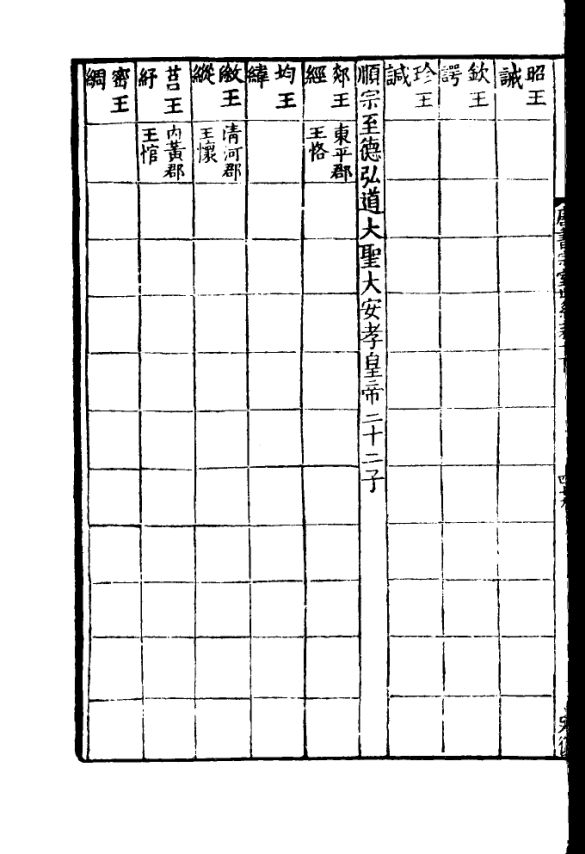 昭王
誠
欽王
諤
珍王
諴
順宗至德弘道大聖大安孝皇帝二十二子
郯王
經
東平郡
王恪
均王
緯
漵王
縱
清河郡
王懷
莒王
紓
內黃郡
王惿
密王
綢